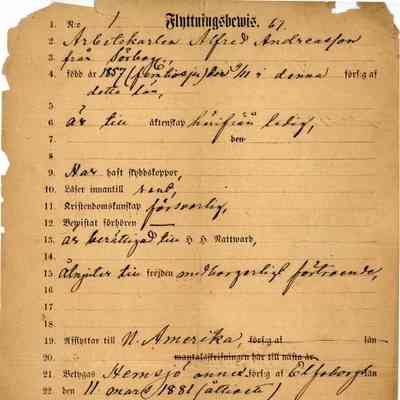 1. N:o 1 Flyttningsbewis. 67.
2 Arbetskarlen Alfred Andreasson
3 från Sörbog
4. född år 1857 (femtiosju) den 9/11 i denna förs:g af
5 detta län,
6 är till äktenskap härifrån ledig,
7 den
8
9. Har haft skyddskoppor,
10. Läser innantill rent,
11. Kristendomskunskap försvarlig,
12. Bewistat förhören —
13. är berättigad till H H Nattward,
14.
15 åtnjuter till frejden medborgerligt förtroende,
16.
18
19. Afflyttar till N. Amerika, förs:g af län
20. mantalsskrifningen här till nästa år.
21. Betygas Hemsjö annex förs:g af Elfsborgs län
22 den 11 mars 1881 (åttioett)